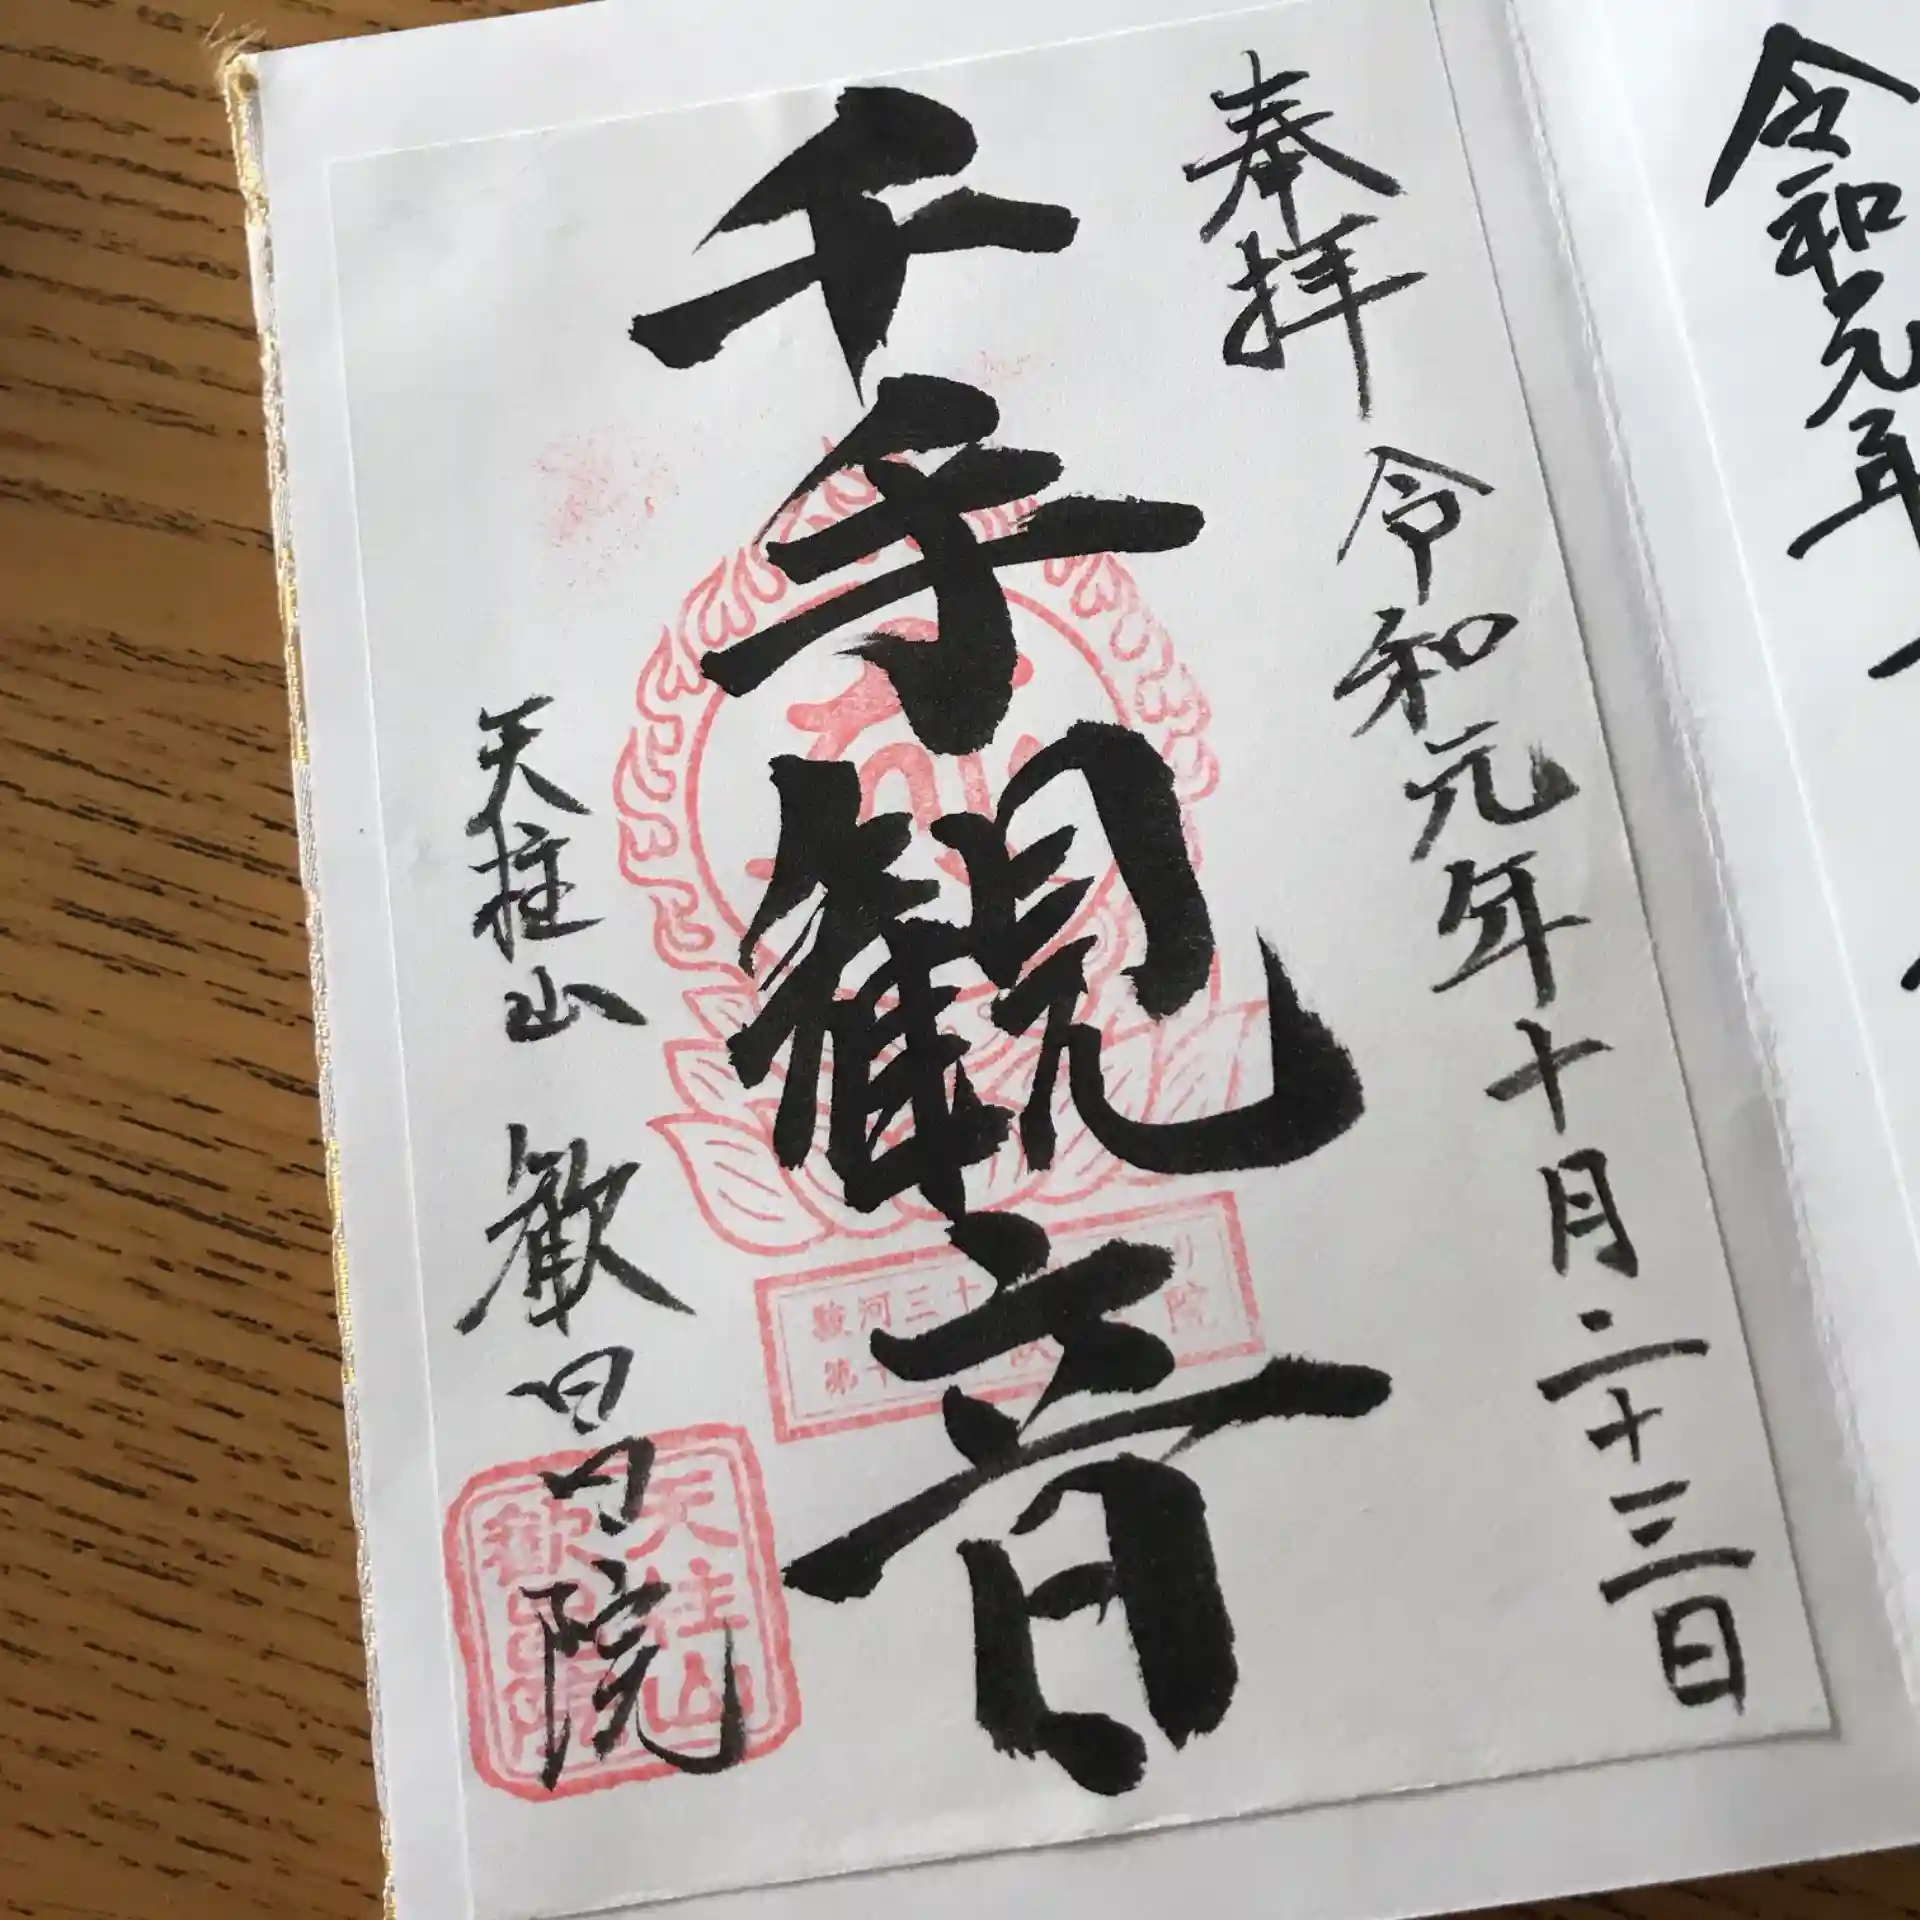 令和元年
奉拝
令和元年十月二十三日
千手観音
天柱山 歓昌院
駿河三十
院
第十
天柱山
歓昌院